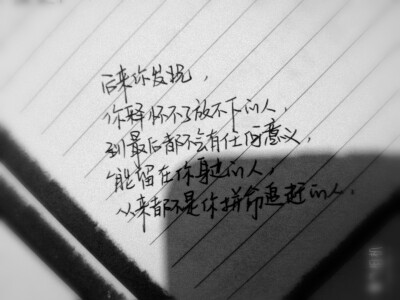 后来你发现，
你释怀不了放不下的人，
到最后都不会有任何意义，
能留在你身边的人，
从来都不是你拼命追赶的人.